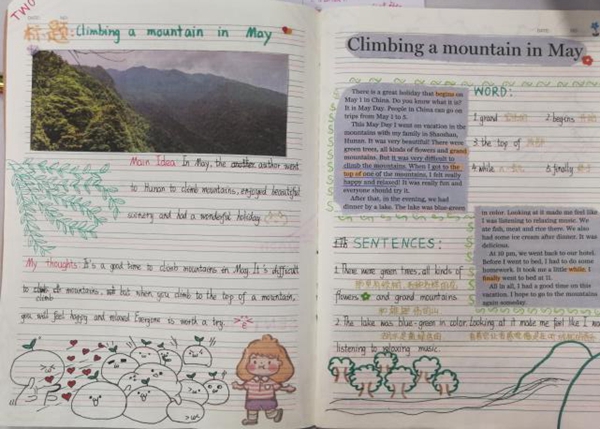 TWO
标题:Climbing a mountain in May
Main Idea: In May, the another author went
to Hunan to climb mountains, enjoyed beautiful
scenery and had a wonderful holiday.
My thoughts: It's a good time to climb mountains in May. It's difficult
to climb mountains, but when you climb to the top of a mountain,
climb
you will feel happy and relaxed. Everyone is worth a try.
Climbing a mountain in May
There is a great holiday that begins on
May 1 in China. Do you know what it is?
It is May Day. People in China can go on
trips from May 1 to 5.
This May Day I went on vacation in the
mountains with my family in Shaoshan,
Hunan. It was very beautiful! There were
green trees, all kinds of flowers and grand
mountains. But it was very difficult to
climb the mountains. When I got to the
top of one of the mountains, I felt really
happy and relaxed! It was really fun and
everyone should try it.
After that, in the evening, we had
dinner by a lake. The lake was blue-green
WORD:
1 grand
2 begins
3 the top of
4 while
5 finally
in color. Looking at it made me feel like
I was listening to relaxing music. We
ate fish, meat and rice there. We also
had some ice cream after dinner. It was
delicious.
At 10 pm, we went back to our hotel.
Before I went to bed, I had to do some
homework. It took me a little while. I
finally went to bed at 11.
All in all, I had a good time on this
vacation. I hope to go to the mountains
again someday.
SENTENCES:
1. There were green trees, all kinds of
flowers and grand mountains
2. The lake was blue-green in color. Looking at it made me feel like I was
listening to relaxing music.